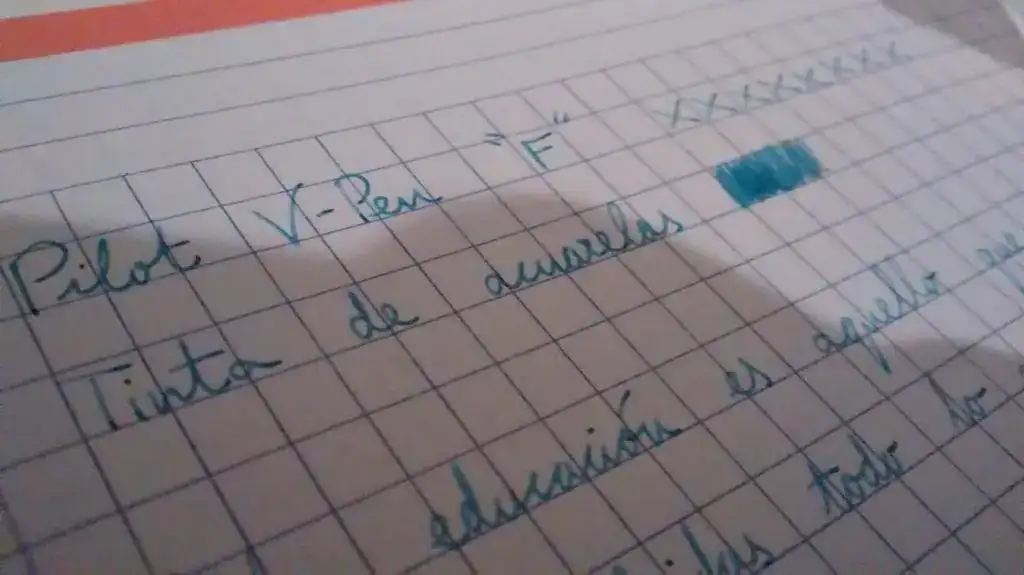 Pilot V-Pen "F" xxxxxxxx
Tinta de acuarelas
educación es aquello que
todo lo